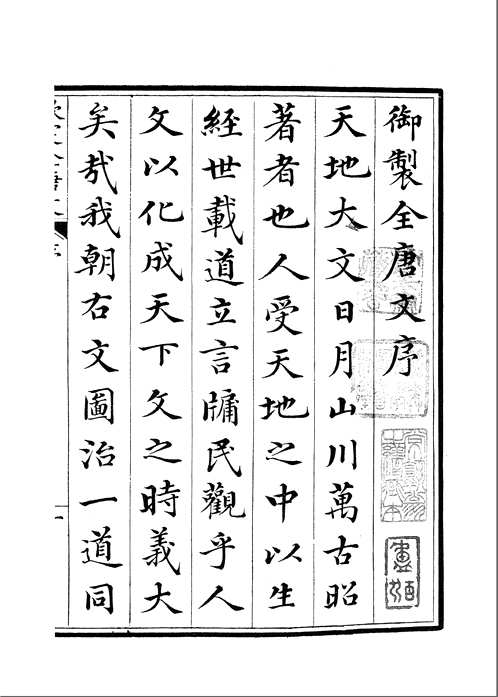 御製全唐文序
天地大文日月山川萬古昭
著者也人受天地之中以生
經世載道立言牖民觀乎人
文以化成天下文之時義大
矣哉我朝右文圖治一道同